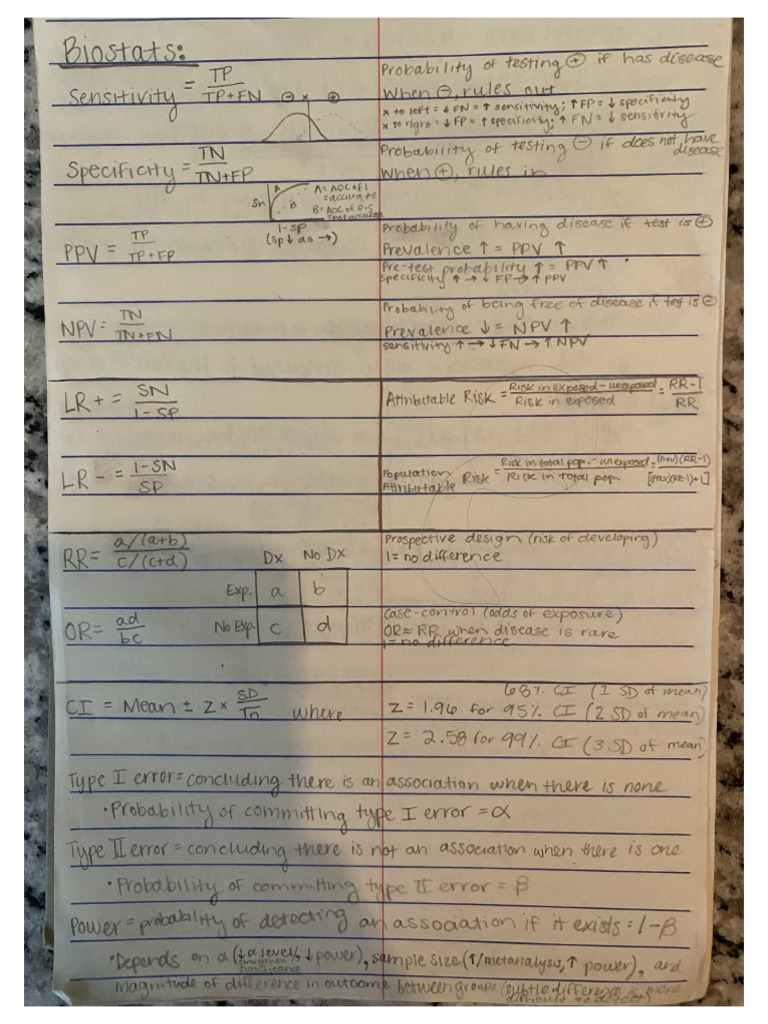 Biostats:
Sensitivity = TP / TP+FN
⊖ x ⊕
Probability of testing ⊕ if has disease
When ⊖, rules out
x to left = ↓ FN = ↑ sensitivity; ↑ FP = ↓ specificity
x to right = ↓ FP = ↑ specificity; ↑ FN = ↓ sensitivity
Specificity = TN / TN+FP
Probability of testing ⊖ if does not have disease
When ⊕, rules in
Sn A B
A = AOC of 1 = accurate
B = AOC of 0.5 = not accurate
1-SP
(sp ↓ as →)
PPV = TP / TP+FP
Probability of having disease if test is ⊕
Prevalence ↑ = PPV ↑
Pre-test probability ↑ = PPV ↑
specificity ↑ → ↓ FP → ↑ PPV
NPV = TN / TN+FN
Probability of being free of disease if test is ⊖
Prevalence ↓ = NPV ↑
sensitivity ↑ → ↓ FN → ↑ NPV
LR + = SN / 1-SP
Attributable Risk = Risk in exposed - unexposed / Risk in exposed = RR-1 / RR
LR - = 1-SN / SP
Population Attributable Risk = Risk in total pop. - unexposed / Risk in total pop. = (Prev)(RR-1) / [(Prev)(RR-1)+1]
RR = a/(a+b) / c/(c+d)
Dx No Dx
Exp. a b
No Exp. c d
Prospective design (risk of developing)
1 = no difference
OR = ad / bc
case-control (odds of exposure)
OR ≈ RR when disease is rare
1 = no difference
CI = Mean ± Z × SD / √n where
68% CI (1 SD of mean)
Z = 1.96 for 95% CI (2 SD of mean)
Z = 2.58 for 99% CI (3 SD of mean)
Type I error = concluding there is an association when there is none
• Probability of committing type I error = α
Type II error = concluding there is not an association when there is one
• Probability of committing type II error = β
Power = probability of detecting an association if it exists = 1-β
• Depends on α (↓ α level, ↓ power), sample size (↑/metanalysis, ↑ power), and
significance
magnitude of difference in outcome between groups (subtle difference is more
difficult to detect)